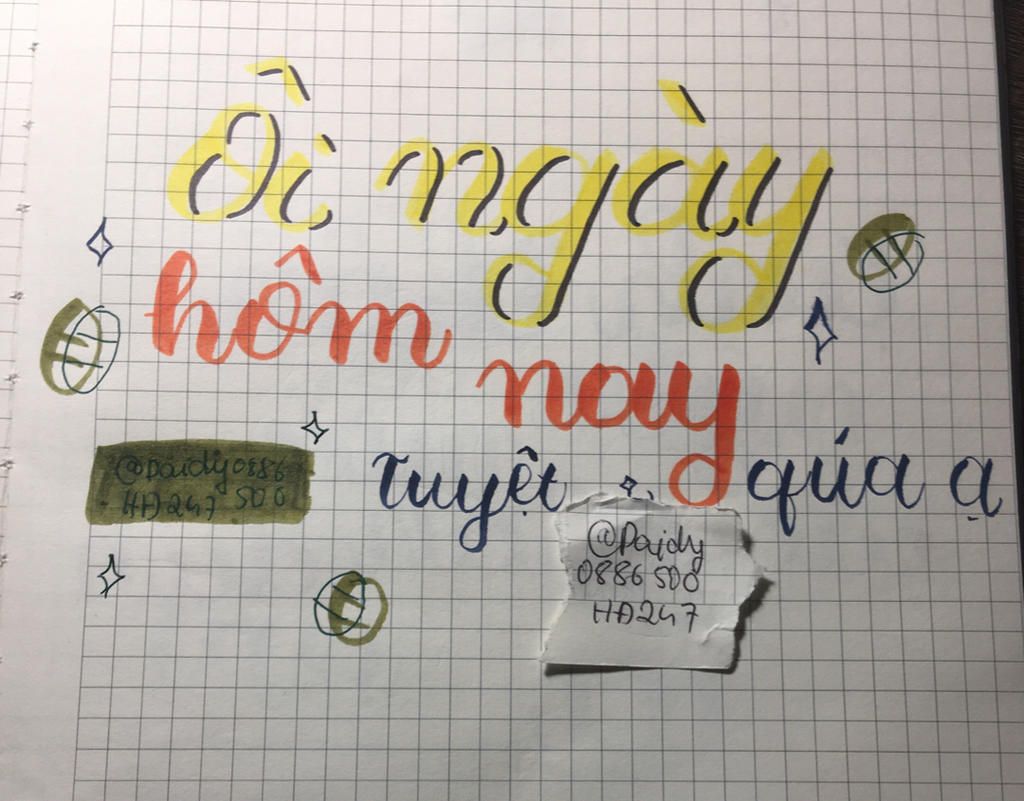 Ôi ngày
hôm
nay
tuyệt qúa ạ
@Paidy0886
HĐ247 500
@Paidy
0886 500
HĐ247